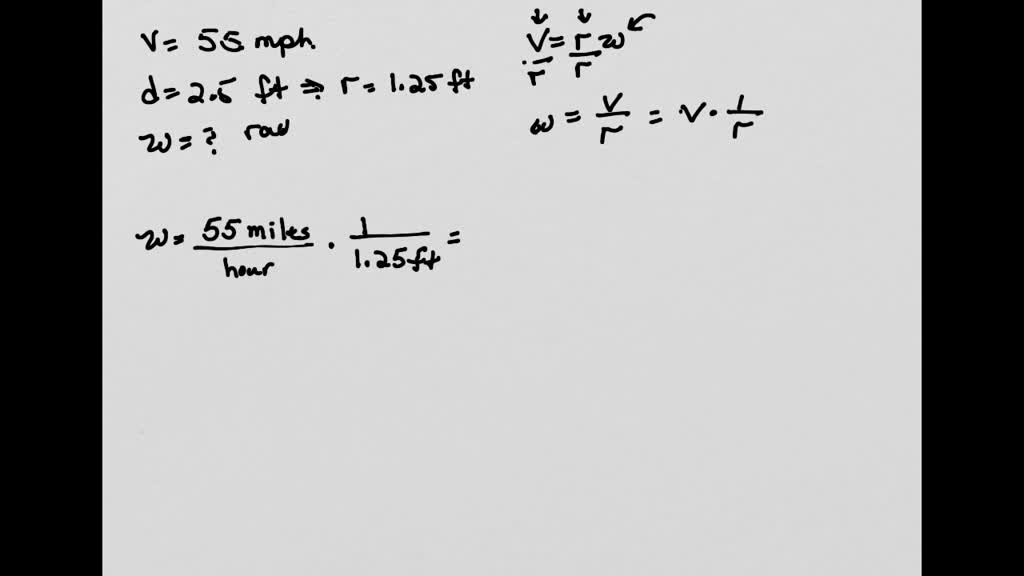 v = 55 mph
d = 2.5 ft ⇒ r = 1.25 ft
w = ? rad
v/r = r/r w
w = v/r = v · 1/r
w = 55 miles/hour · 1/1.25 ft =